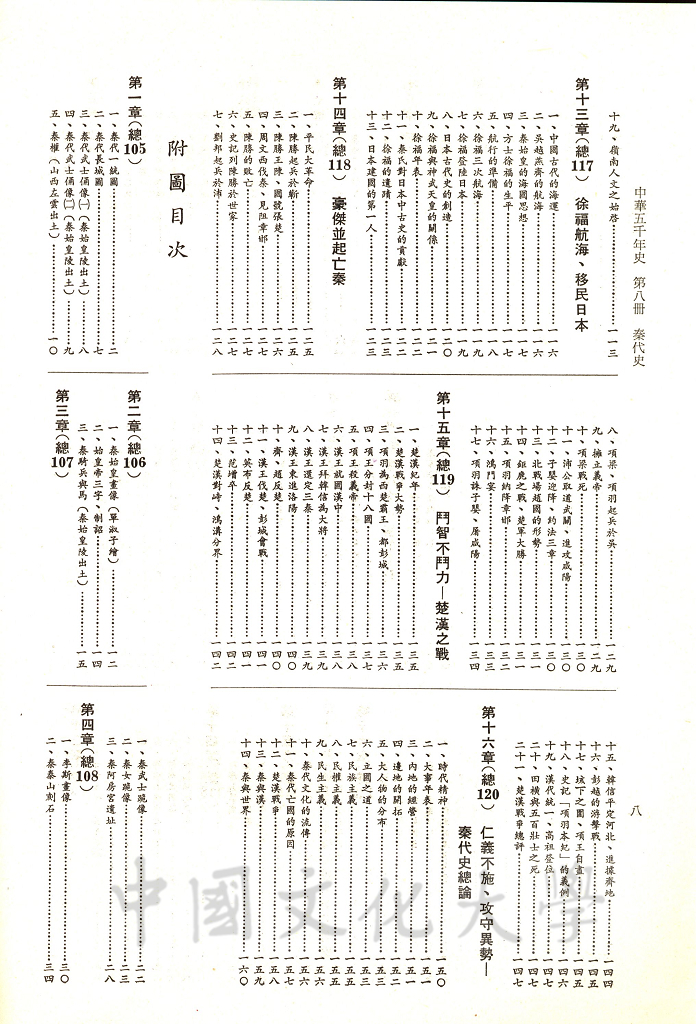 中華五千年史　第八冊　秦代史
八
十九、嶺南人文之始啓……一一三
第十三章(總117)　徐福航海、移民日本
一、中國古代的海運……一一六
二、吳越燕齊的航海……一一六
三、秦始皇的海國思想……一一七
四、方士徐福的生平……一一七
五、航行的準備……一一八
六、徐福三次航海……一一九
七、徐福登陸日本……一一九
八、日本古代史的創造……一二〇
九、徐福與神武天皇的關係……一二一
十、徐福年表……一二二
十一、秦氏對日本中古史的貢獻……一二二
十二、徐福的遺蹟……一二三
十三、日本建國的第一人……一二三
第十四章(總118)　豪傑並起亡秦
一、平民大革命……一二五
二、陳勝起兵於蘄……一二五
三、陳勝王陳、國號張楚……一二六
四、周文西伐秦、見阻章邯……一二七
五、陳勝的敗亡……一二七
六、史記列陳勝於世家……一二七
七、劉邦起兵於沛……一二八
八、項梁、項羽起兵於吳……一二九
九、擁立義帝……一二九
十、項梁戰死……一三〇
十一、沛公取道武關、進攻咸陽……一三〇
十二、子嬰迎降、約法三章……一三〇
十三、北戰場趙國的形勢……一三一
十四、鉅鹿之戰、楚軍大勝……一三一
十五、項羽納降章邯……一三二
十六、鴻門宴……一三三
十七、項羽誅子嬰、屠咸陽……一三四
第十五章(總119)　鬥智不鬥力—楚漢之戰
一、楚漢紀年……一三五
二、楚漢戰爭大勢……一三五
三、項羽為西楚霸王、都彭城……一三六
四、項王分封十八國……一三七
五、項王殺義帝……一三八
六、漢王就國漢中……一三八
七、漢王拜韓信為大將……一三九
八、漢王還定三秦……一三九
九、漢王東進洛陽……一四〇
十、齊、趙反楚……一四〇
十一、漢王伐楚、彭城會戰……一四一
十二、英布反楚……一四一
十三、范增卒……一四二
十四、楚漢對峙、鴻溝分界……一四二
十五、韓信平定河北、進據齊地……一四四
十六、彭越的游擊戰……一四五
十七、垓下之圍、項王自盡……一四五
十八、史記「項羽本紀」的義例……一四六
十九、漢代統一、高祖登位……一四七
二十、田橫與五百壯士之死……一四七
二十一、楚漢戰爭總評……一四七
第十六章(總120)　仁義不施、攻守異勢—
秦代史總論
一、時代精神……一五〇
二、大事年表……一五一
三、內地的經營……一五一
四、邊地的開拓……一五二
五、大人物的分布……一五三
六、立國之道……一五三
七、民族主義……一五五
八、民權主義……一五五
九、民生主義……一五六
十、秦代文化的流傳……一五六
十一、秦代亡國的原因……一五七
十二、楚漢戰爭……一五八
十三、秦與漢……一五九
十四、秦與世界……一六〇
附圖目次
第一章(總105)
一、秦代一統圖……二
二、秦代長城圖……七
三、秦代武士俑像㈠(秦始皇陵出土)……八
四、秦代武士俑像㈡(秦始皇陵出土)……九
五、秦權(山西左雲出土)……一〇
第二章(總106)
一、秦始皇畫像(單淑子繪)……一二
二、始皇帝三字、制詔……一四
三、秦騎兵與馬(秦始皇陵出土)……一五
第三章(總107)
一、秦武士跪像……二二
二、秦女跪像……二三
三、秦阿房宮遺址……二八
第四章(總108)
一、李斯畫像……三〇
二、秦泰山刻石……三四
中國文化大學